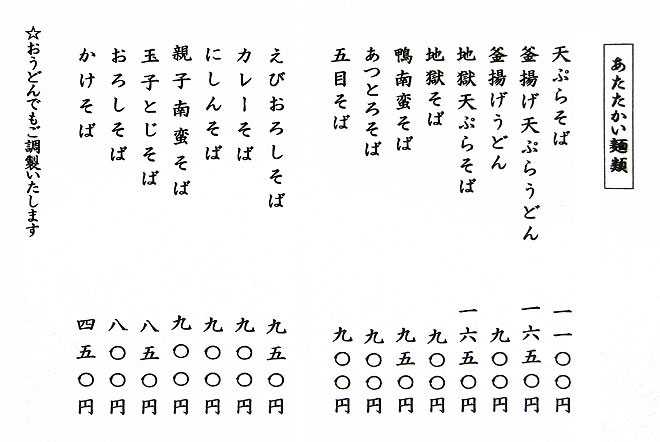 あたたかい麺類
天ぷらそば 一一〇〇円
釜揚げ天ぷらうどん 一六五〇円
釜揚げうどん 九〇〇円
地獄天ぷらそば 一六五〇円
地獄そば 九〇〇円
鴨南蛮そば 九五〇円
あつとろそば 九〇〇円
五目そば 九〇〇円
えびおろしそば 九五〇円
カレーそば 九〇〇円
にしんそば 九〇〇円
親子南蛮そば 九〇〇円
玉子とじそば 八五〇円
おろしそば 八〇〇円
かけそば 四五〇円
☆おうどんでもご調製いたします